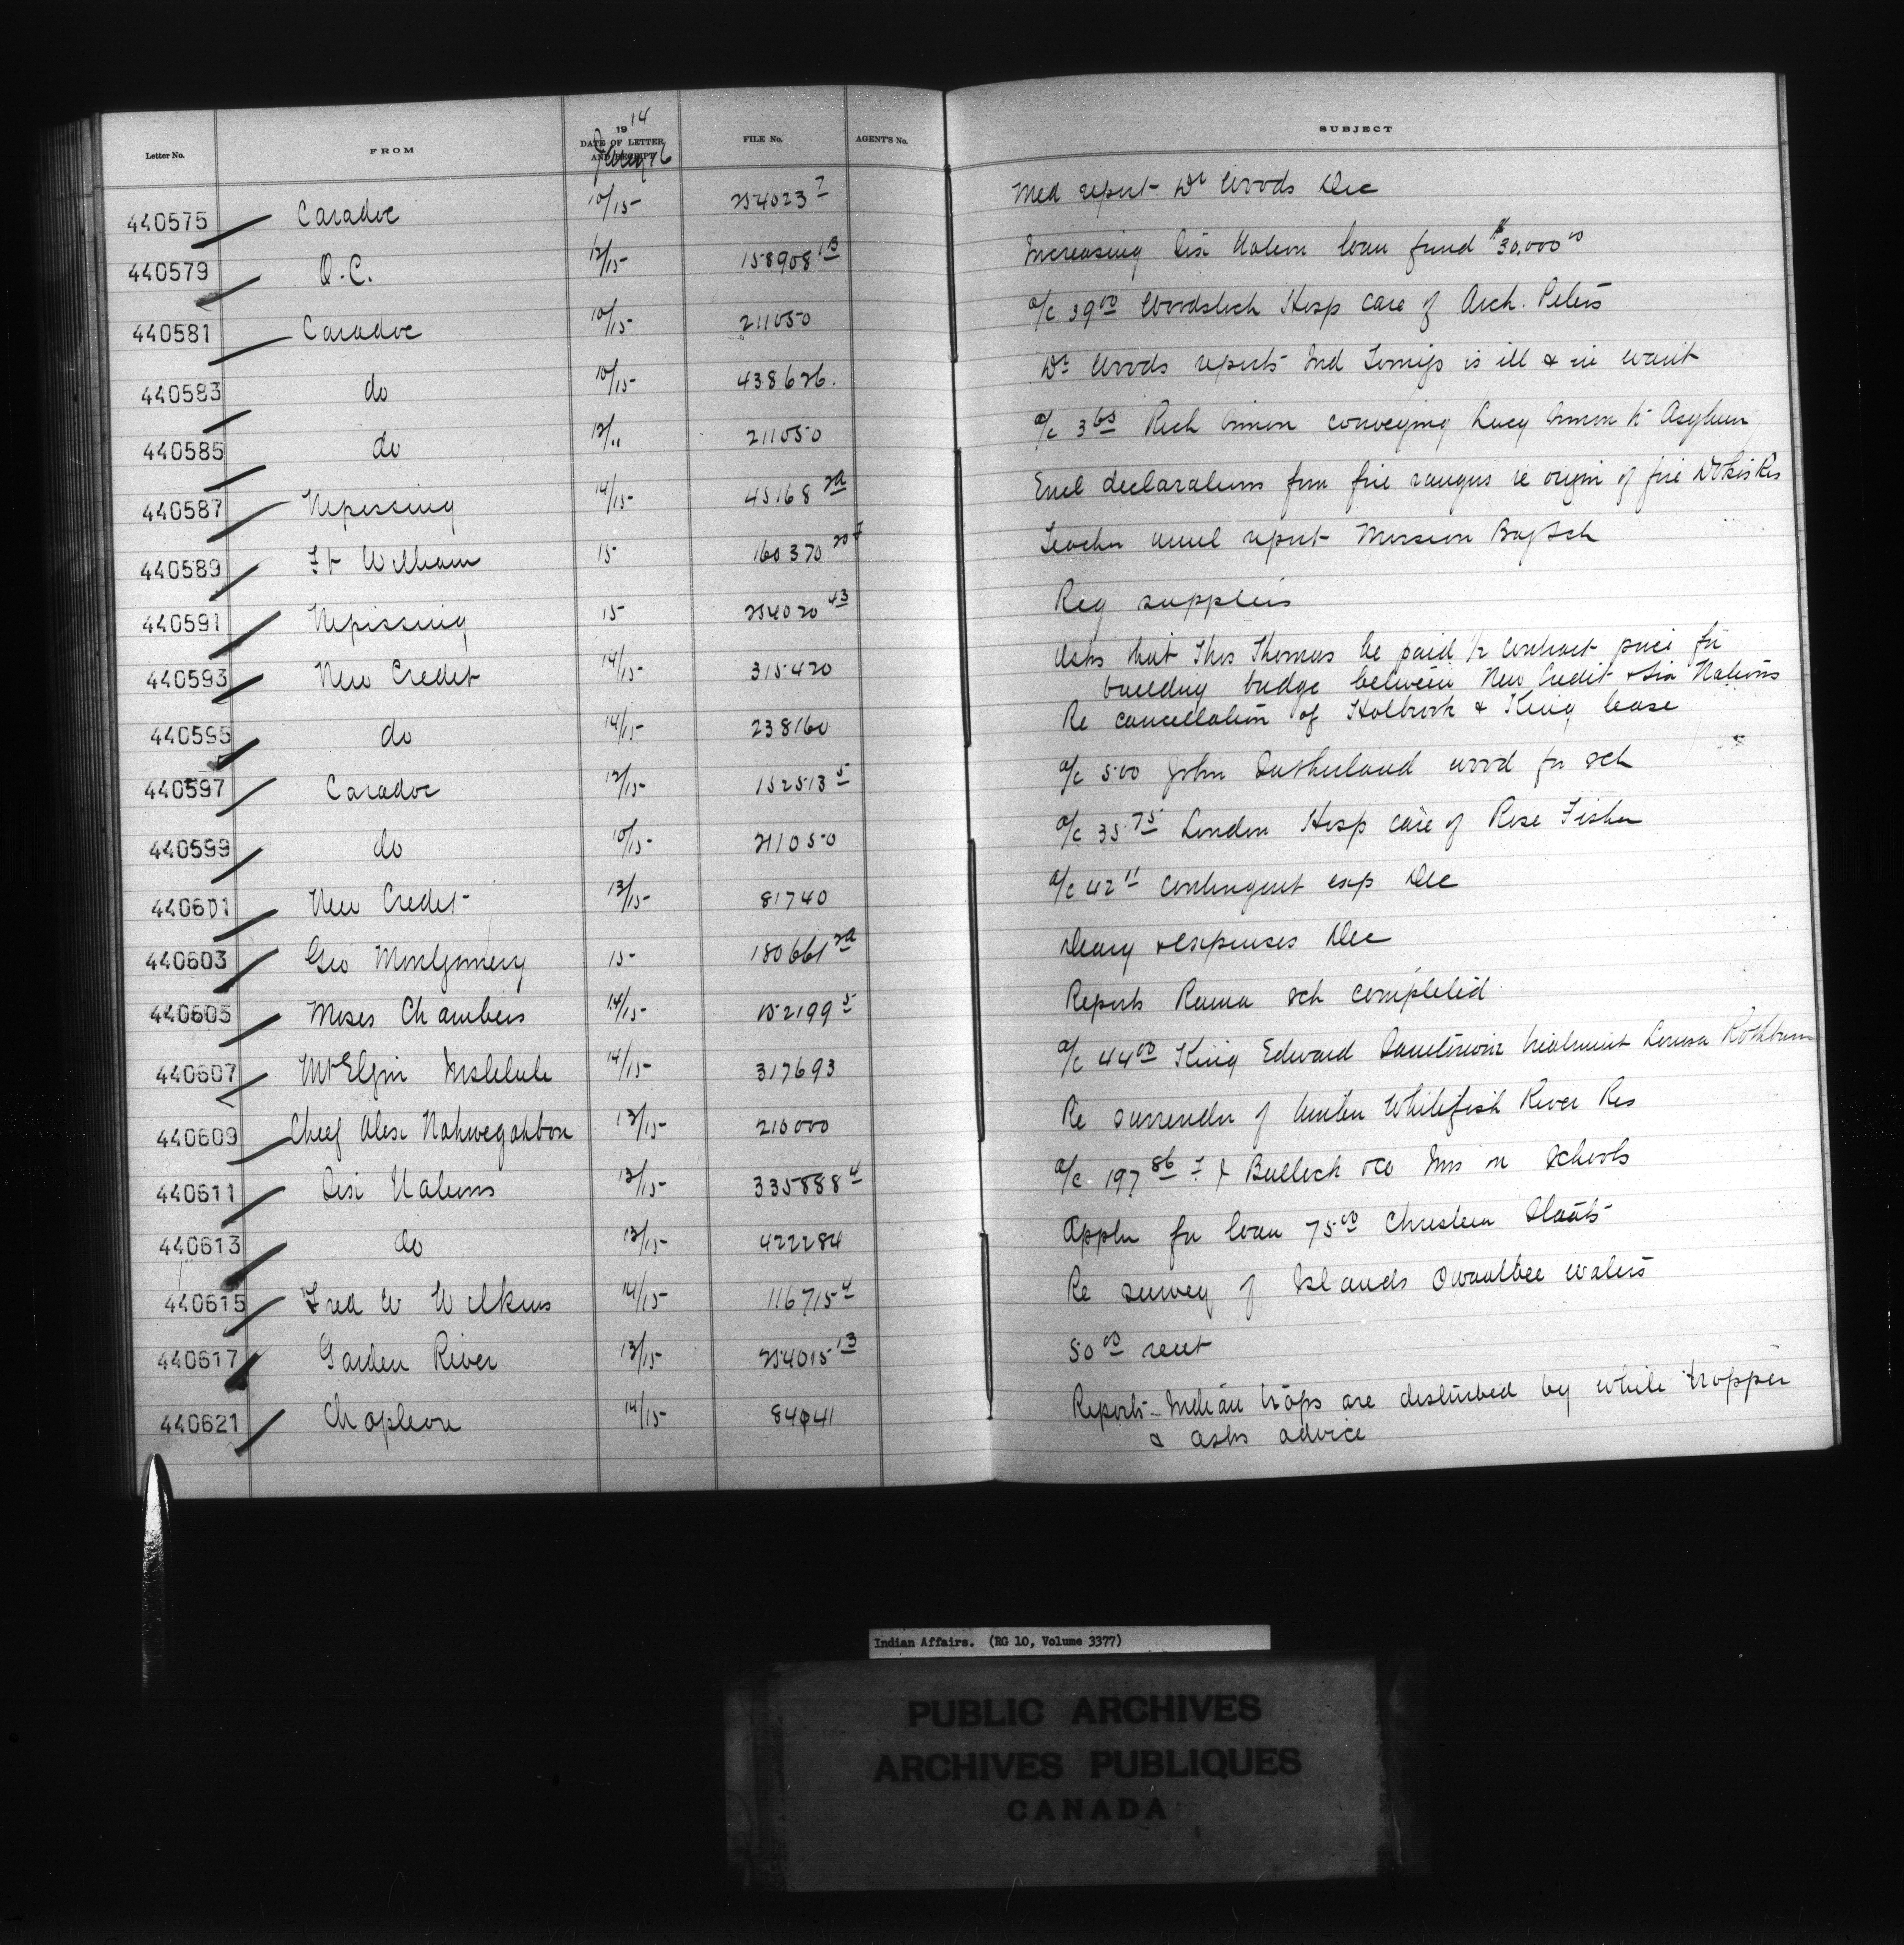 Letter No. FROM 1914 DATE OF LETTER AND RECEIPT FILE No. AGENT'S No. SUBJECT
440575 Caradoc 10/15 254023 7 Med report Dr Woods Dec
440579 O.C. 12/15 158908 13 Increasing Six Nation loan fund $30,000 00
440581 Caradoc 10/15 211050 a/c 39 00 Woodstock Hosp care of Arch. Peters
440583 do 10/15 438626. Dr Woods reports Ind is ill & in want
440585 do 12/" 211050 a/c 3 65 Rich conveying Lucy to Asylum
440587 Nipissing 14/15 45168 2A Encl declarations from fire rangers re origin of fire Dokis Res
440589 Ft William 15 160370 Teacher annul report Mission Bay Sch
440591 Nipissing 15 254020 43 Req supplies
440593 New Credit 14/15 315420 Asks that Thos Thomas be paid 1/2 contract price for
building bridge between New Credit & Six Nations
440595 do 14/15 238160 Re cancellation of Holbrook & King lease
440597 Caradoc 12/15 152513 5 a/c 500 John Sutherland wood for sch
440599 do 10/15 211050 a/c 35 75 London Hosp care of Rose Fisher
440601 New Credit 13/15 81740 a/c 42 11 contingent exp Dec
440603 Geo Montgomery 15 180661 2A Diary & expenses Dec
440605 Moses Chambers 14/15 152199 5 Reports Rama sch completed
440607 Mt Elgin Institute 14/15 317693 a/c 44 00 King Edward Sanitorium treatment Louisa
440609 Cheif Alex Nahwegahbow 13/15 210000 Re surrender of timber Whitefish River Res
440611 Six Nations 13/15 335888 4 a/c 197 86 & Co Ins on Schools
440613 do 13/15 422284 Appln for loan 75 00 Christeen Staats
440615 Fred W Wilkins 14/15 116715 4 Re survey of Islands waters
440617 Garden River 13/15 254015 13 50 00 rent
440621 Chapleau 14/15 84041 Reports Indian traps are disturbed by white trapper
& asks advice
Indian Affairs. (RG 10, Volume 3377)
PUBLIC ARCHIVES
ARCHIVES PUBLIQUES
CANADA